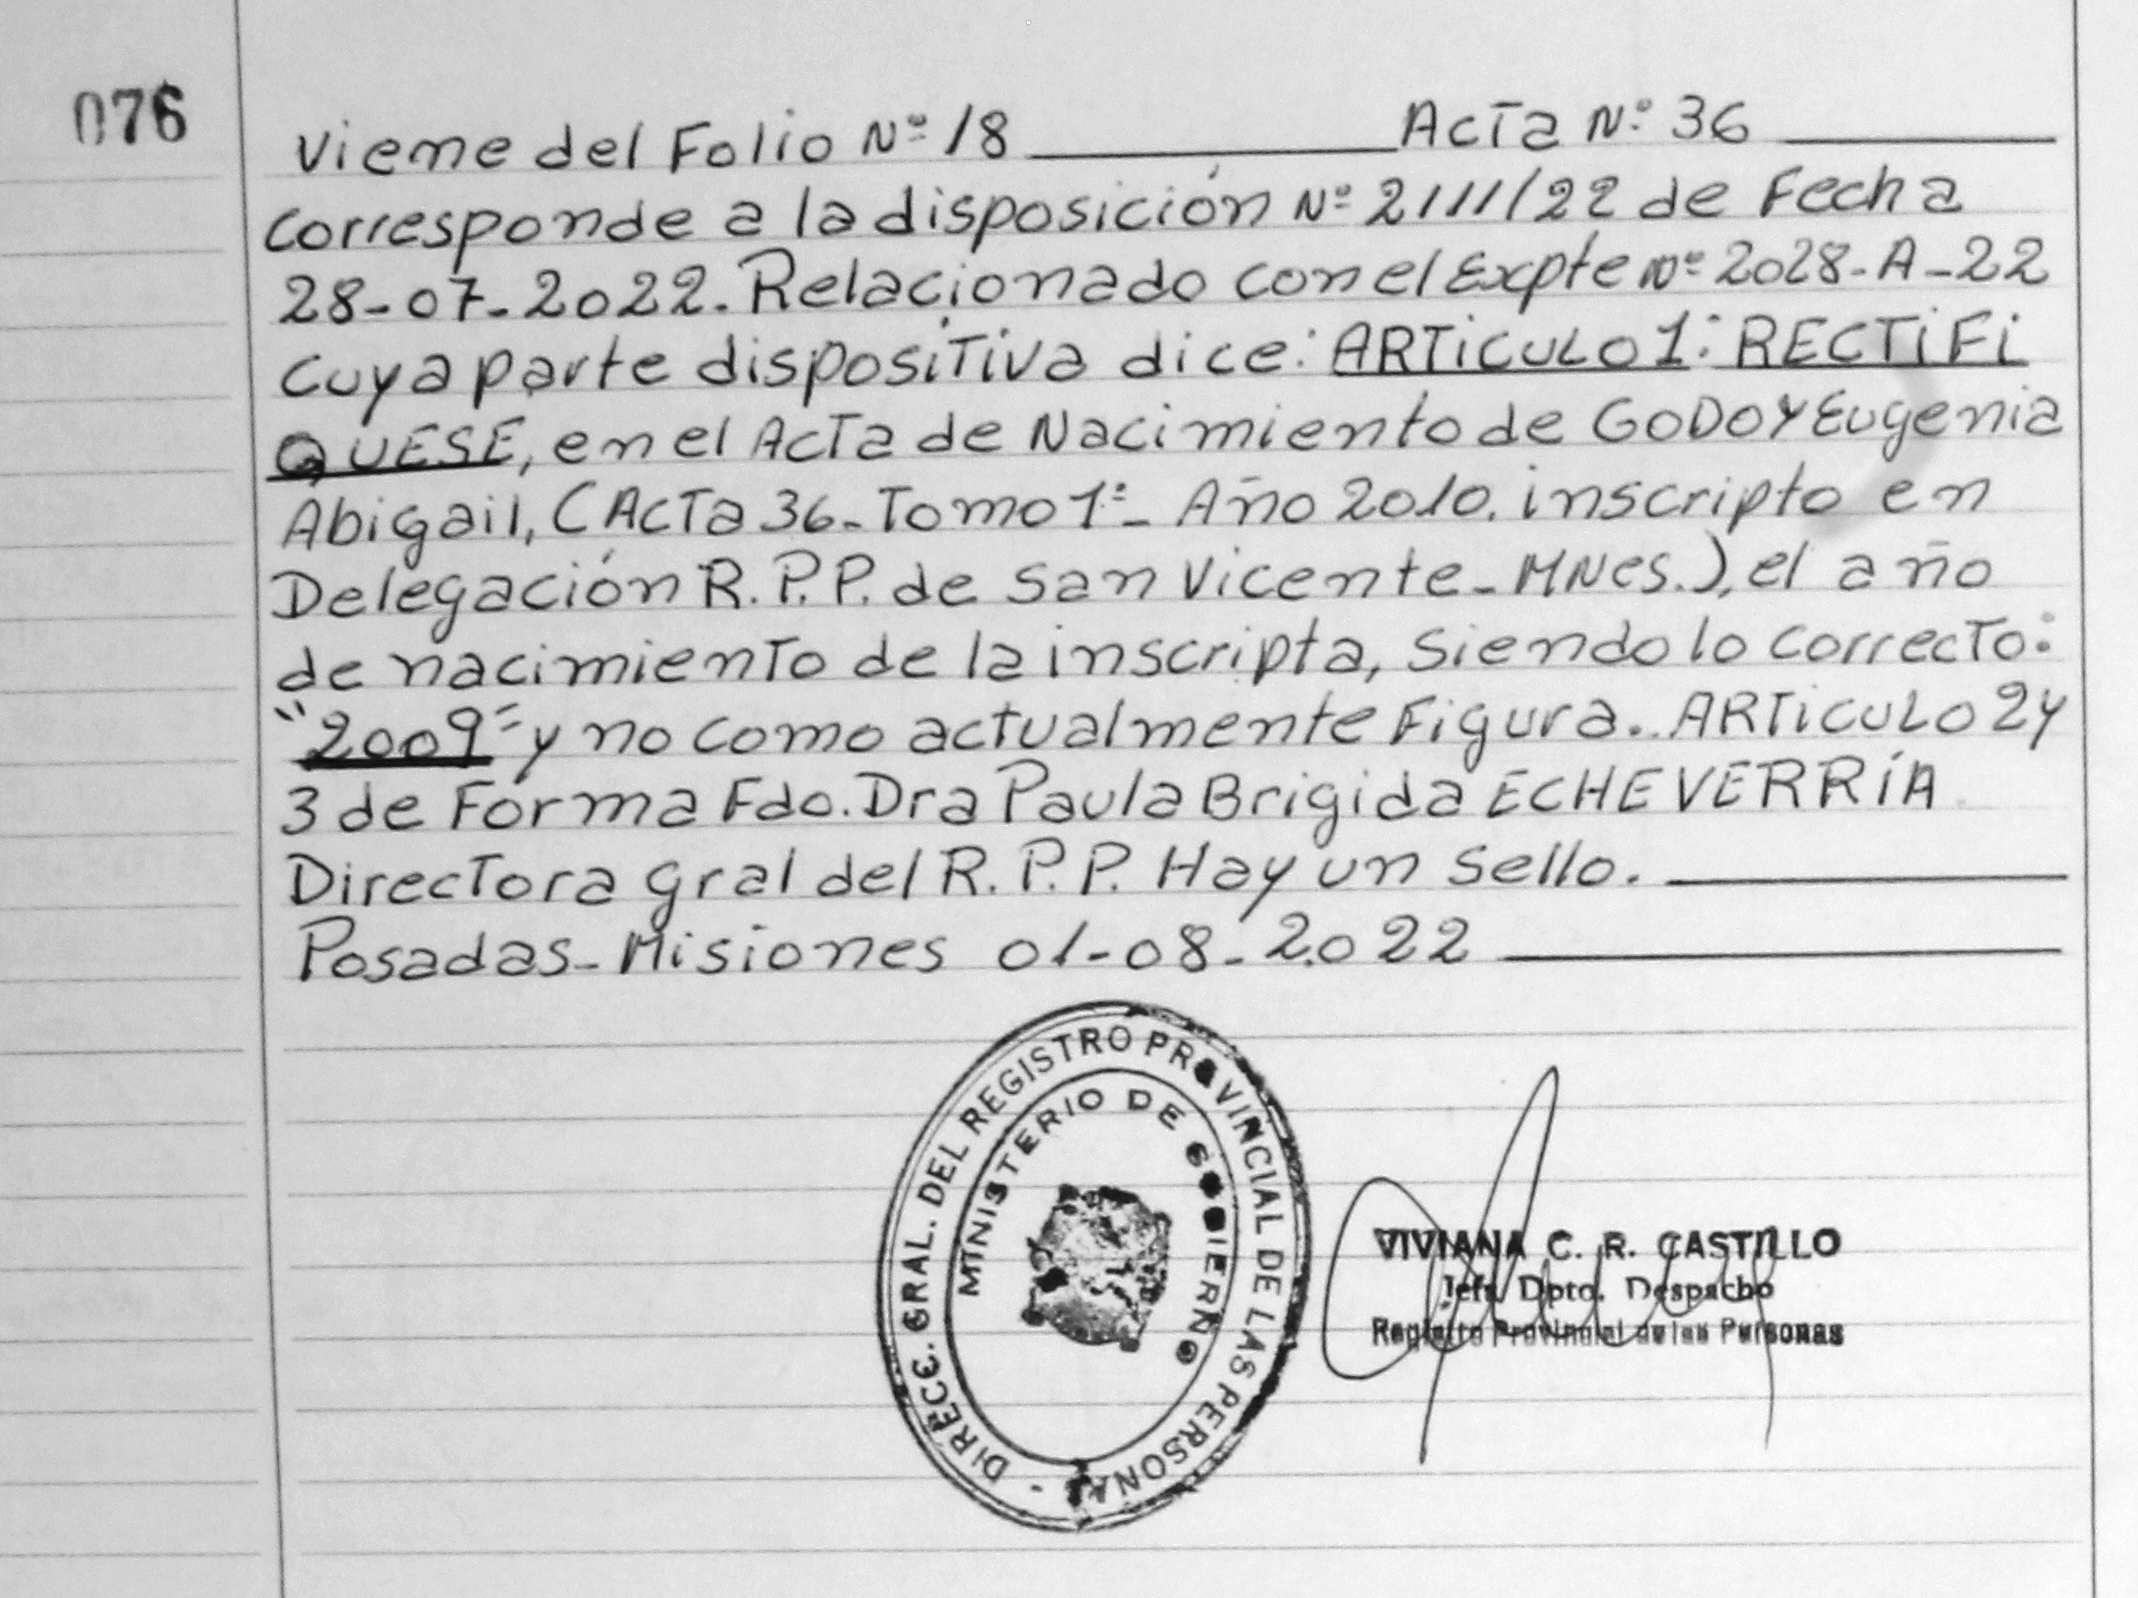 076
Viene del Folio Nº 18 Acta Nº 36
corresponde a la disposición Nº 2111/22 de Fecha
28-07-2022. Relacionado con el Expte Nº 2028-A-22
cuya parte dispositiva dice: ARTICULO 1: RECTIFI
QUESE, en el Acta de Nacimiento de GODOY Eugenia
Abigail, (Acta 36-Tomo 1º- Año 2010. inscripto en
Delegación R.P.P. de San Vicente-MNes.), el año
de nacimiento de la inscripta, siendo lo correcto:
"2009" y no como actualmente Figura. ARTICULO 2 y
3 de Forma Fdo. Dra Paula Brigida ECHEVERRÍA
Directora gral del R.P.P. Hay un Sello.
Posadas-Misiones 01-08-2022
DIRECC. GRAL. DEL REGISTRO PROVINCIAL DE LAS PERSONAS
MINISTERIO DE GOBIERNO
VIVIANA C. R. CASTILLO
Jefe Dpto. Despacho
Registro Provincial de las Personas